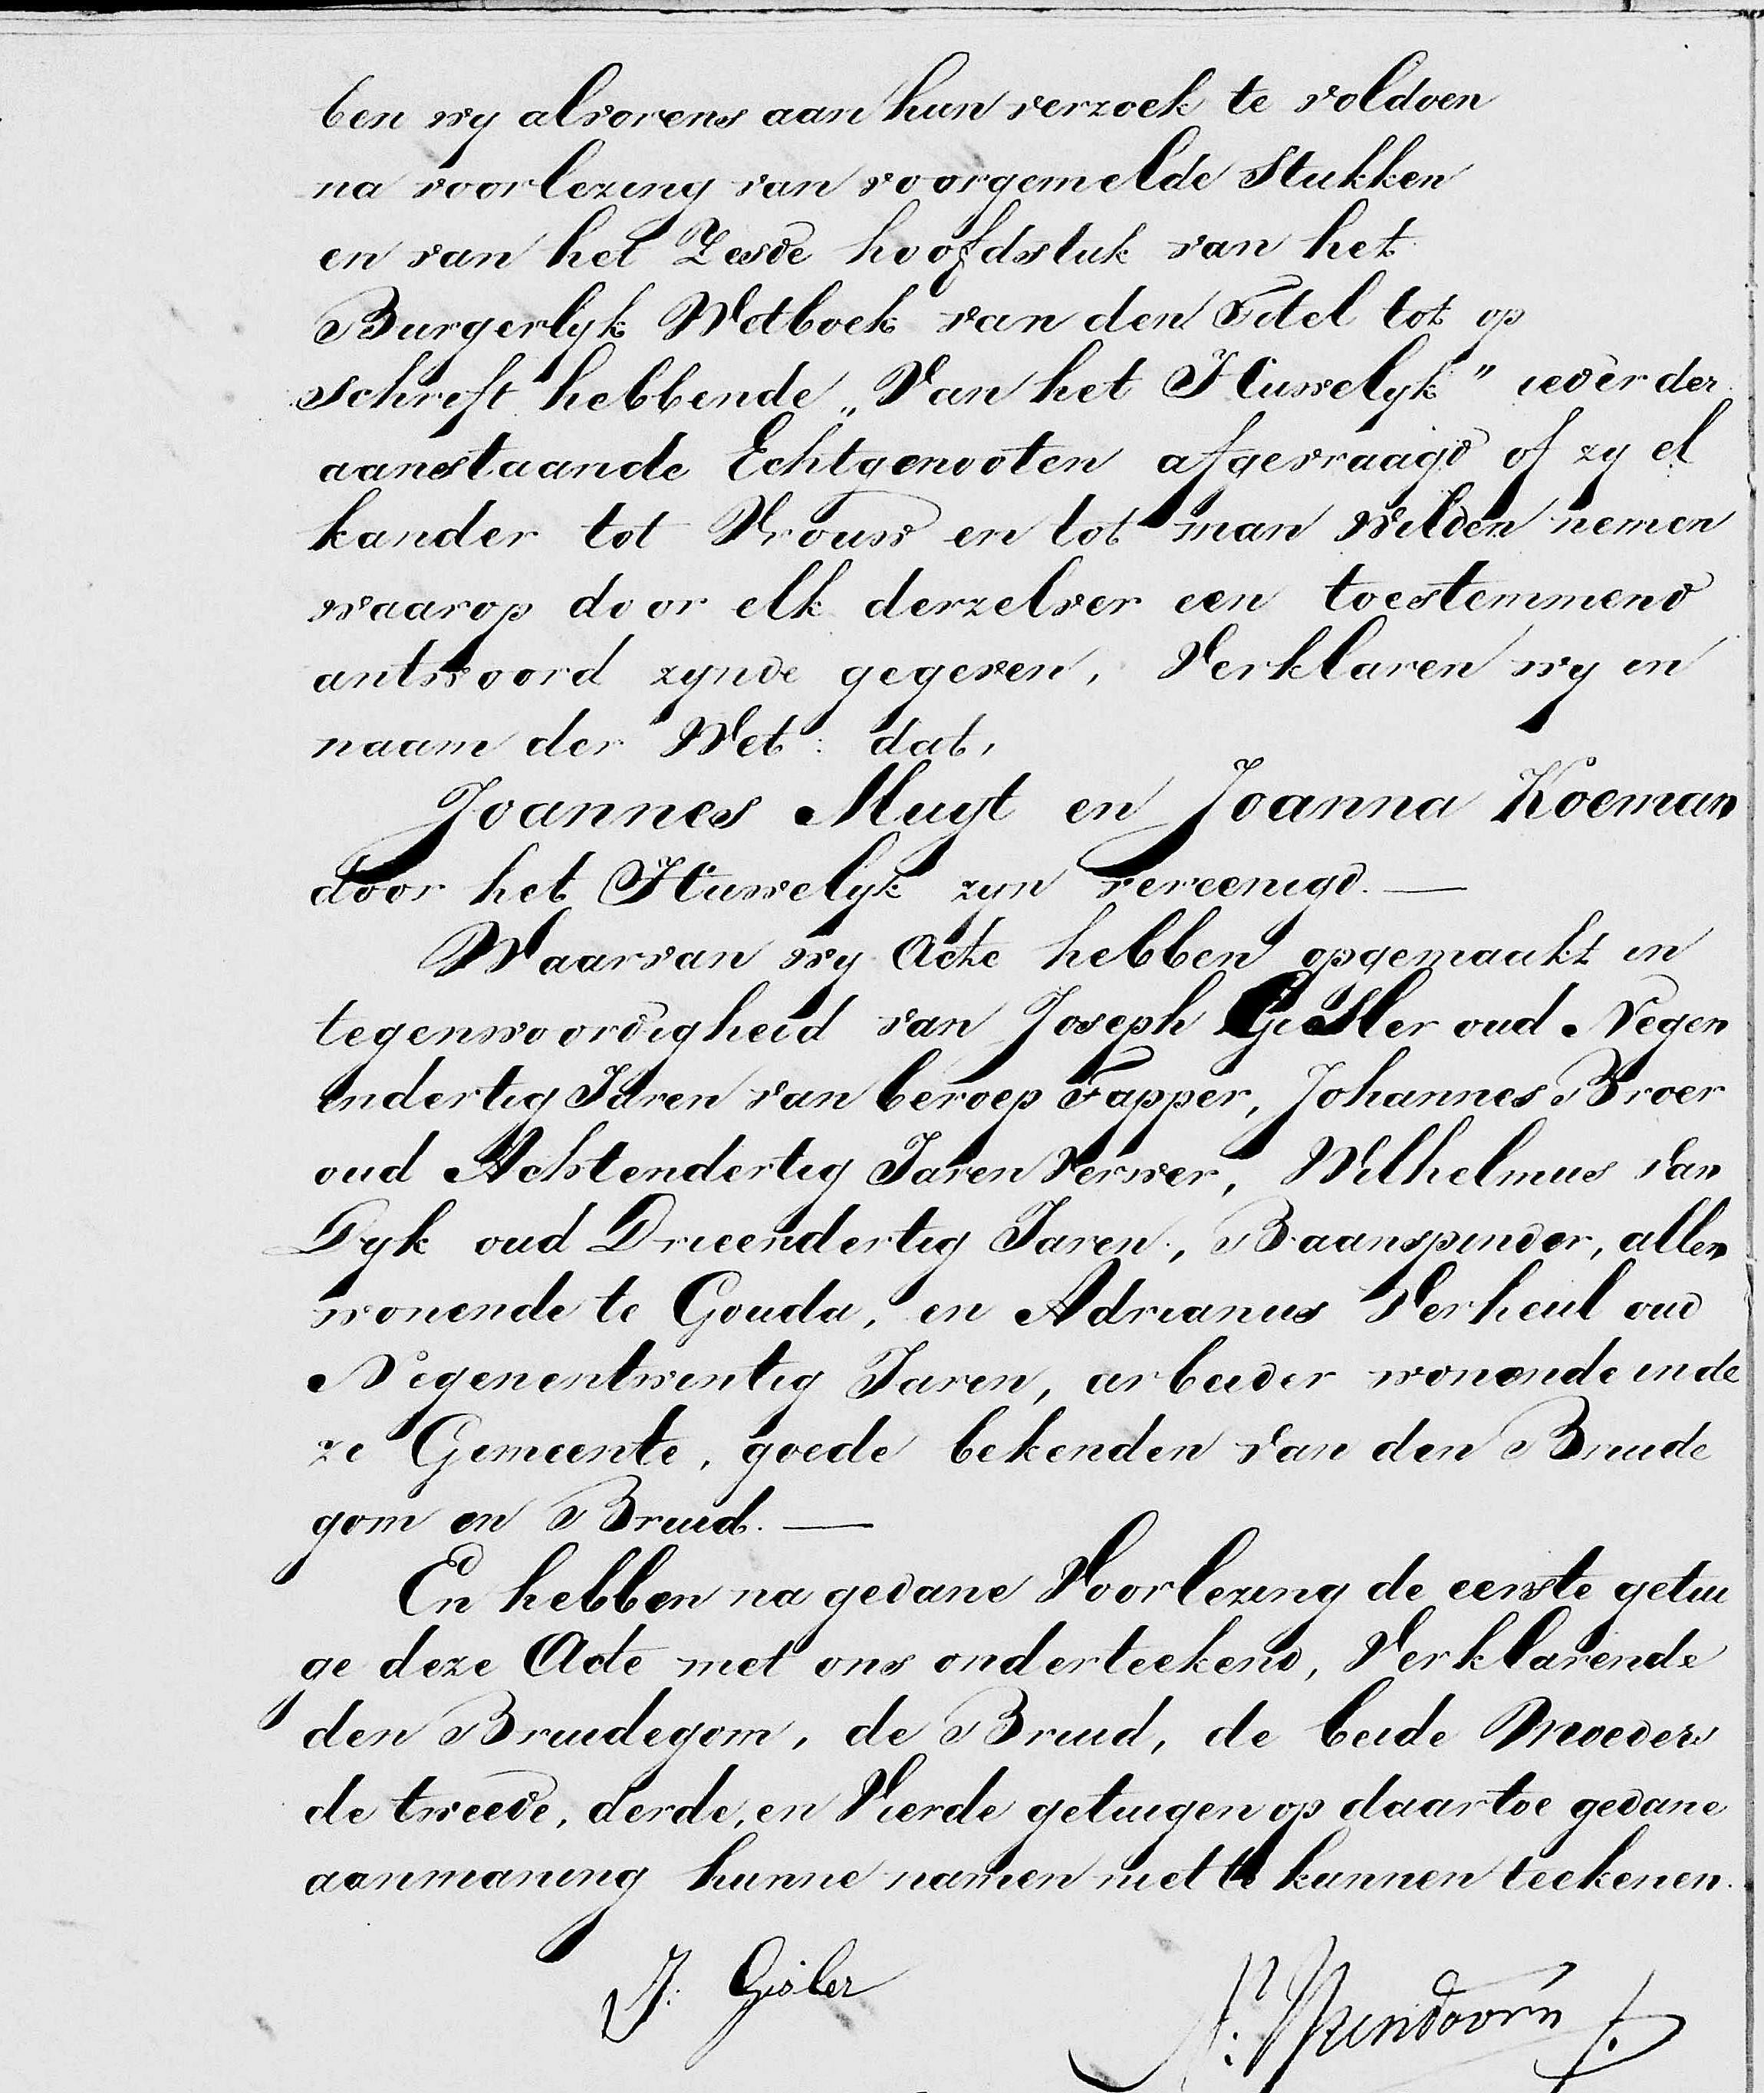 ben wy alvorens aan hun verzoek te voldoen
na voorlezing van voorgemelde Stukken
en van het Zesde hoofdstuk van het
Burgerlyk Wetboek van den Titel tot op
schrift hebbende „Van het Huwelyk" ieder der
aanstaande Echtgenooten afgevraagd of zy el
kander tot Vrouw en tot man wilden nemen
waarop door elk derzelver een toestemmend
antwoord zynde gegeven, Verklaren wy in
naam der Wet: dat,
Joannes Muyt en Joanna Koeman
door het Huwelyk zyn vereenigd. —
Waarvan wy Acte hebben opgemaakt in
tegenwoordigheid van Joseph Gisler oud Negen
endertig Jaren van beroep Tapper, Johannes Broer
oud Achtendertig Jaren Verwer, Wilhelmus van
Dyk oud Drieendertig Jaren, Baanspinder, allen
wonende te Gouda, en Adrianus Verheul oud
Negenentwintig Jaren, arbeider wonende in de
ze Gemeente, goede bekenden van den Bruide
gom en Bruid. —
En hebben na gedane Voorlezing de eerste getui
ge deze Acte met ons onderteekend, Verklarende
den Bruidegom, de Bruid, de beide Moeders
de tweede, derde, en Vierde getuigen op daartoe gedane
aanmaning hunne namen niet te kunnen teekenen.
J. Gisler